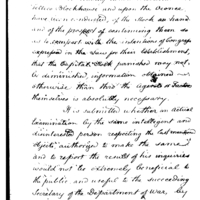 Blockhouse and upon the
have                      of the Stock on hand
and of the prospect of continuing them so
as to comport with the intentions of Congress
expressed in the          for their establishment,
that the Capital Stock furnished may not
be diminished, information              
otherwise than that the Agents or
themselves is absolutely necessary.
It is submitted whether an actual
examination by the some intelligent and
disinterested person respecting the last mention
objects authorized to make the same
and to report the results of his inquiries
would not be extremely beneficial to
the public and useful to the succeeding
Secretary of the Department of War, by